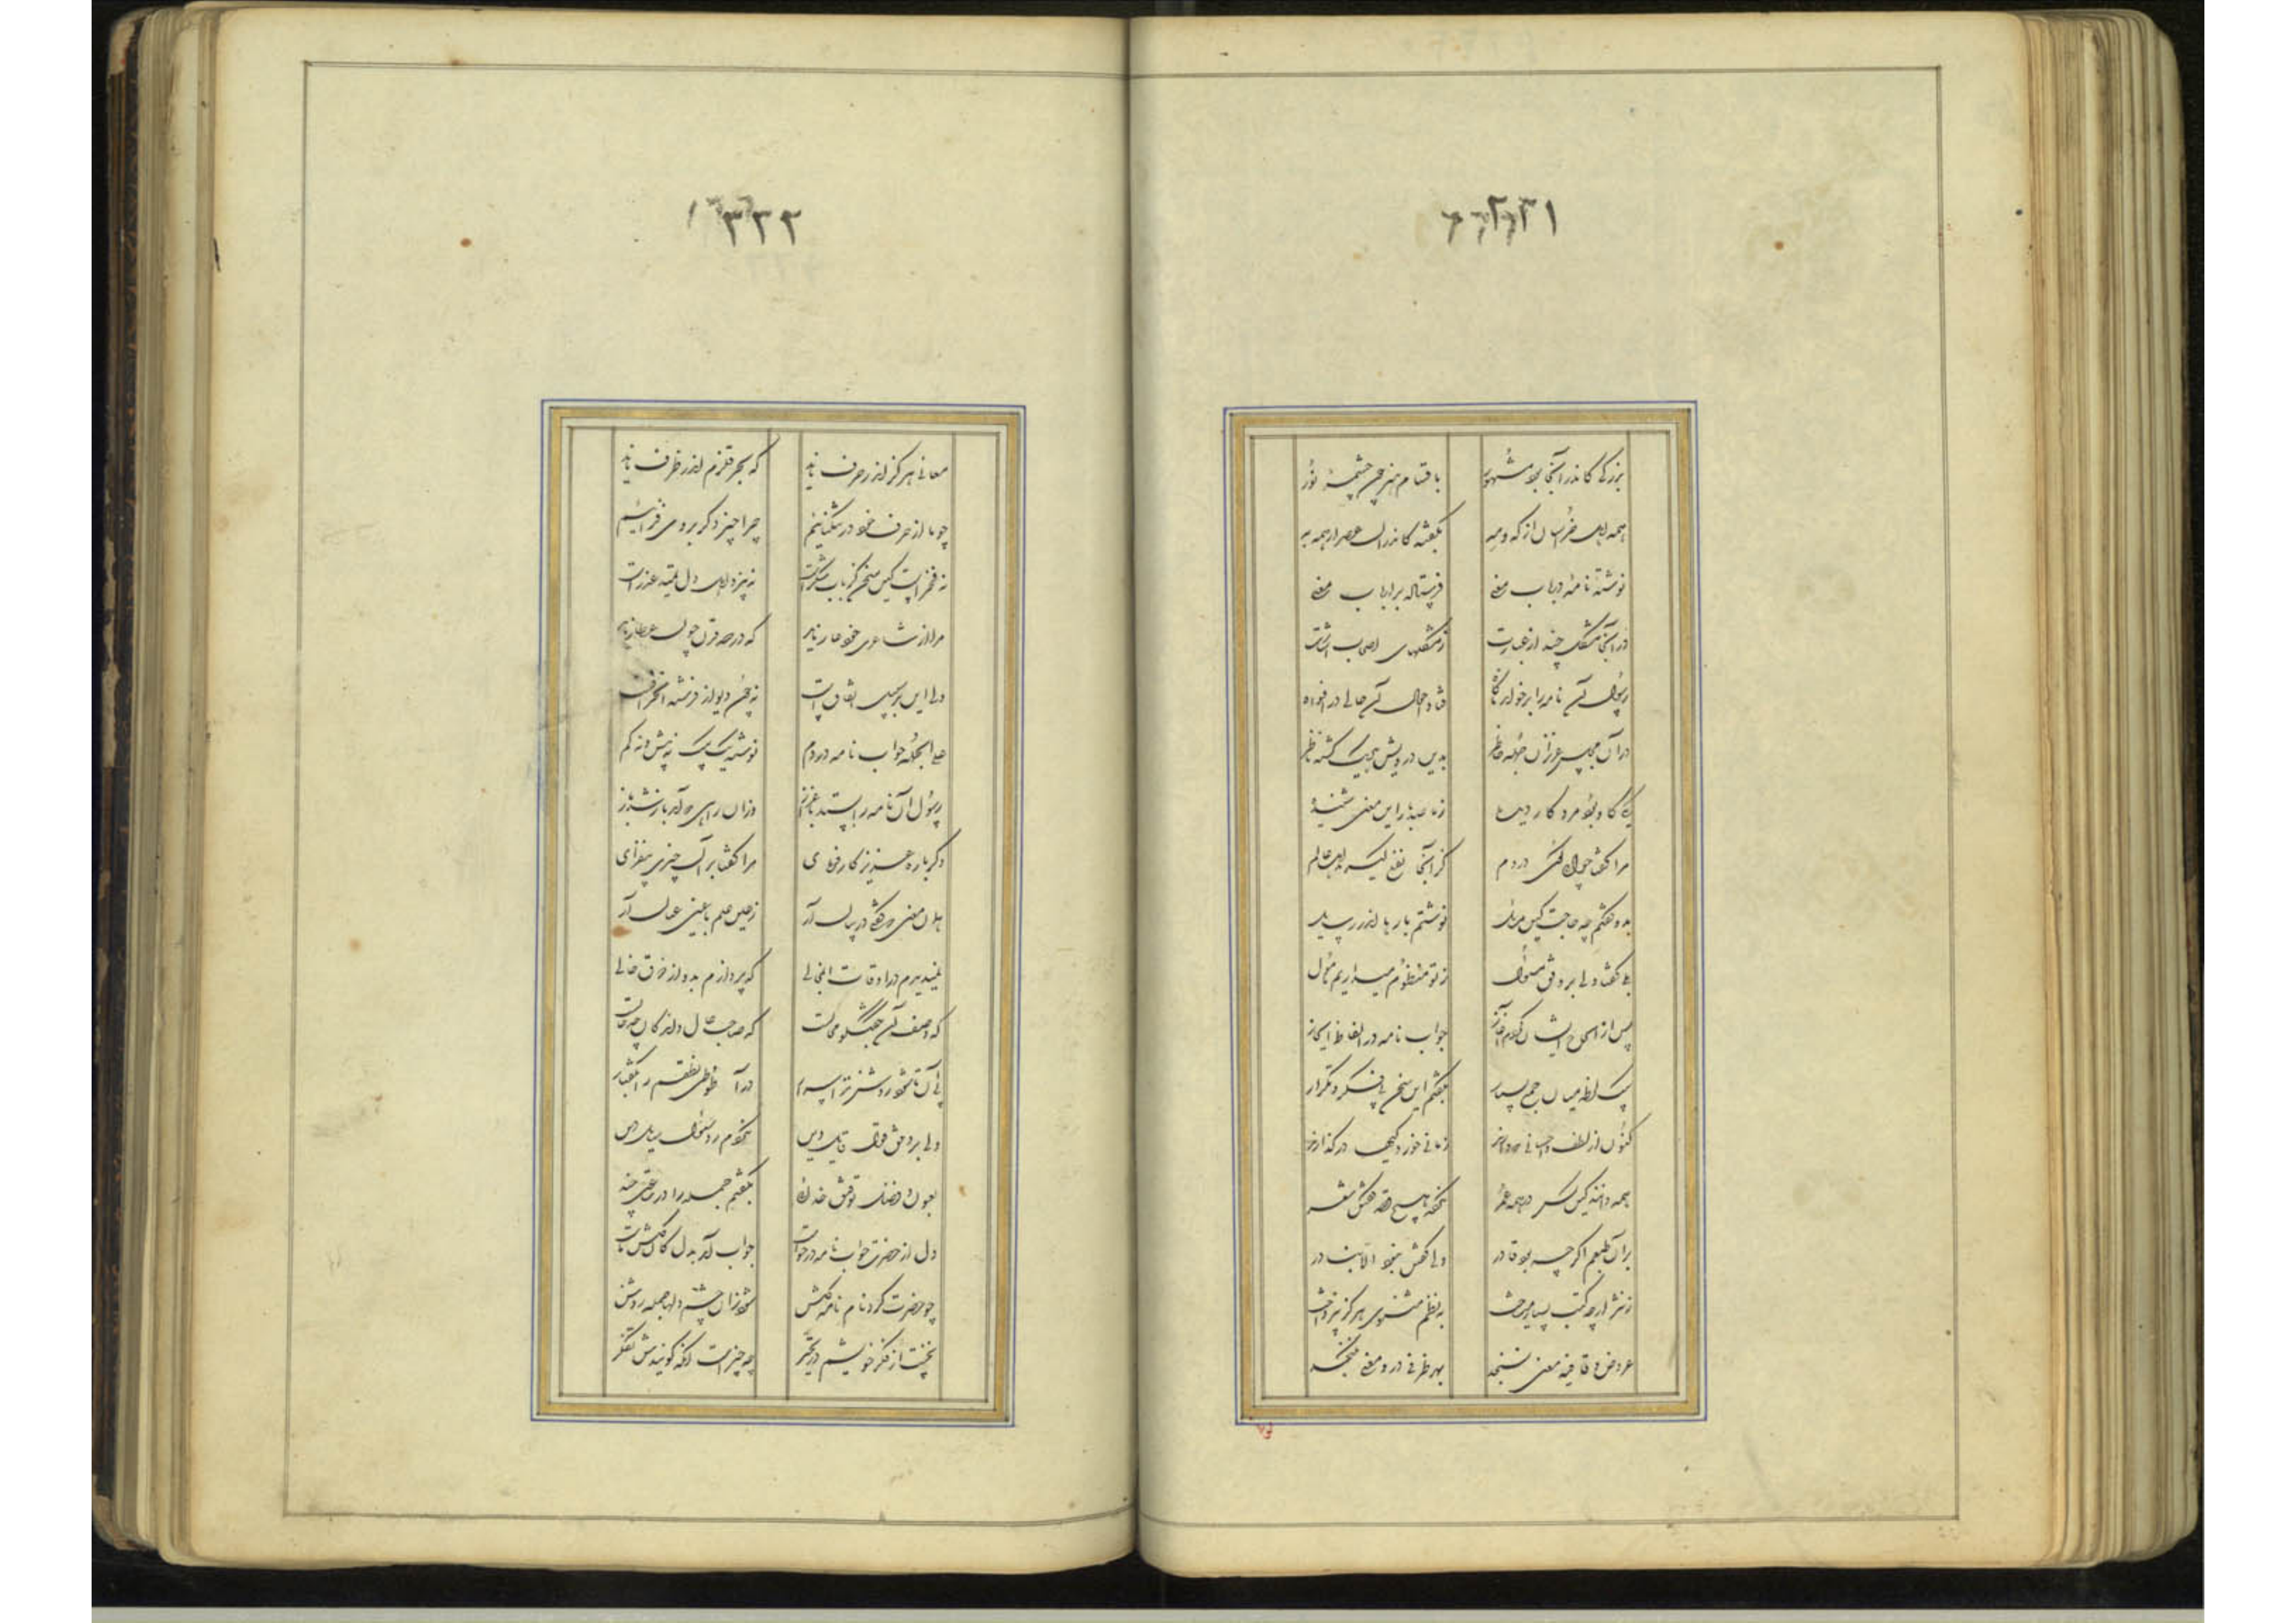 ۳۳۱
بزرگی کاندر آنجا بود مشهور باقسام هنر چون چشمهٔ نور
همه اهل خراسان از که و مه بگفته کاندرین عصر از همه به
نوشته نامهٔ در باب معنی فرستاده بر ارباب معنی
در آنجا مشکلی چند از عبارت ز مشکلهای اصحاب اشارت
رسول آن نامه را برخواند ناگاه فتاد احوال آن حالی در افواه
در آن مجلس عزیزان جمله حاضر بدین درویش هر یک گشته ناظر
یکی کاو بود مرد کار دیده ز ما صد بار این معنی شنیده
مرا گفتا جوابی گوی در دم کز آنجا نفع گیرند اهل عالم
بدو گفتم چه حاجت کین مسائل نوشتم بارها اندر رسایل
بلی گفتا ولی بر وفق مسئول ز تو منظوم میداریم مامول
پس از الحاح ایشان کردم آغاز جواب نامه در الفاظ ایجاز
بیک لحظه میان جمع بسیار بگفتم این سخن بی فکر و تکرار
کنون از لطف و احسانی که دارند ز ما این خوردگیها درگذارند
همه دانند کین کس در همه عمر نکرده هیچ قصد گفتن شعر
بر آن طبعم اگر چه بود قادر ولی گفتن نبود الا بنادر
ز نثر ارچه کتب بسیار میساخت بنظم مثنوی هرگز نپرداخت
عروض و قافیه معنی نسنجد بهر ظرفی درو معنی نگنجد
۳۳۲
معانی هرگز اندر حرف ناید که بحر قلزم اندر ظرف ناید
چو ما از حرف خود در تنگنائیم چرا چیز دگر بر وی فزائیم
نه فخرست کین سخن کز باب شکرست به نزد اهل دل تمهید عذرست
مرا از شاعری خود عار ناید که در صد قرن چون عطار ناید
ولی این بر سبیل اتفاق است نه چون دیو از فرشته استراق
علی الجمله جواب نامه در دم نوشتم یک بیک نه بیش و نه کم
رسول آن نامه را بستد باعزاز وز آن راهی که آمد باز شد باز
دگر باره عزیز کار فرمای مرا گفتا بر آن چیزی بیفزای
همان معنی که گفتی در بیان آر ز عین علم با عین عیان آر
نمیدیدم در اوقات آن مجالی که پردازم بدو از ذوق حالی
که وصف آن بگفتگو محالست که صاحب حال داند کان چه حالست
پی آن تا شود روشن تر اسرار درآمد طوطی نطقم بگفتار
ولی بر وفق قول قایل دین نکردم رد سؤال سایل دین
بعون و فضل توفیق خداوند بگفتم جمله را در ساعتی چند
دل از حضرت چو نام نامه درخواست جواب آمد بدل کان گلشن ماست
چو حضرت کرد نام نامه گلشن شود زان چشم دلها جمله روشن
نخست از فکر خویشم در تحیر چه چیزست آنکه گویندش تفکر